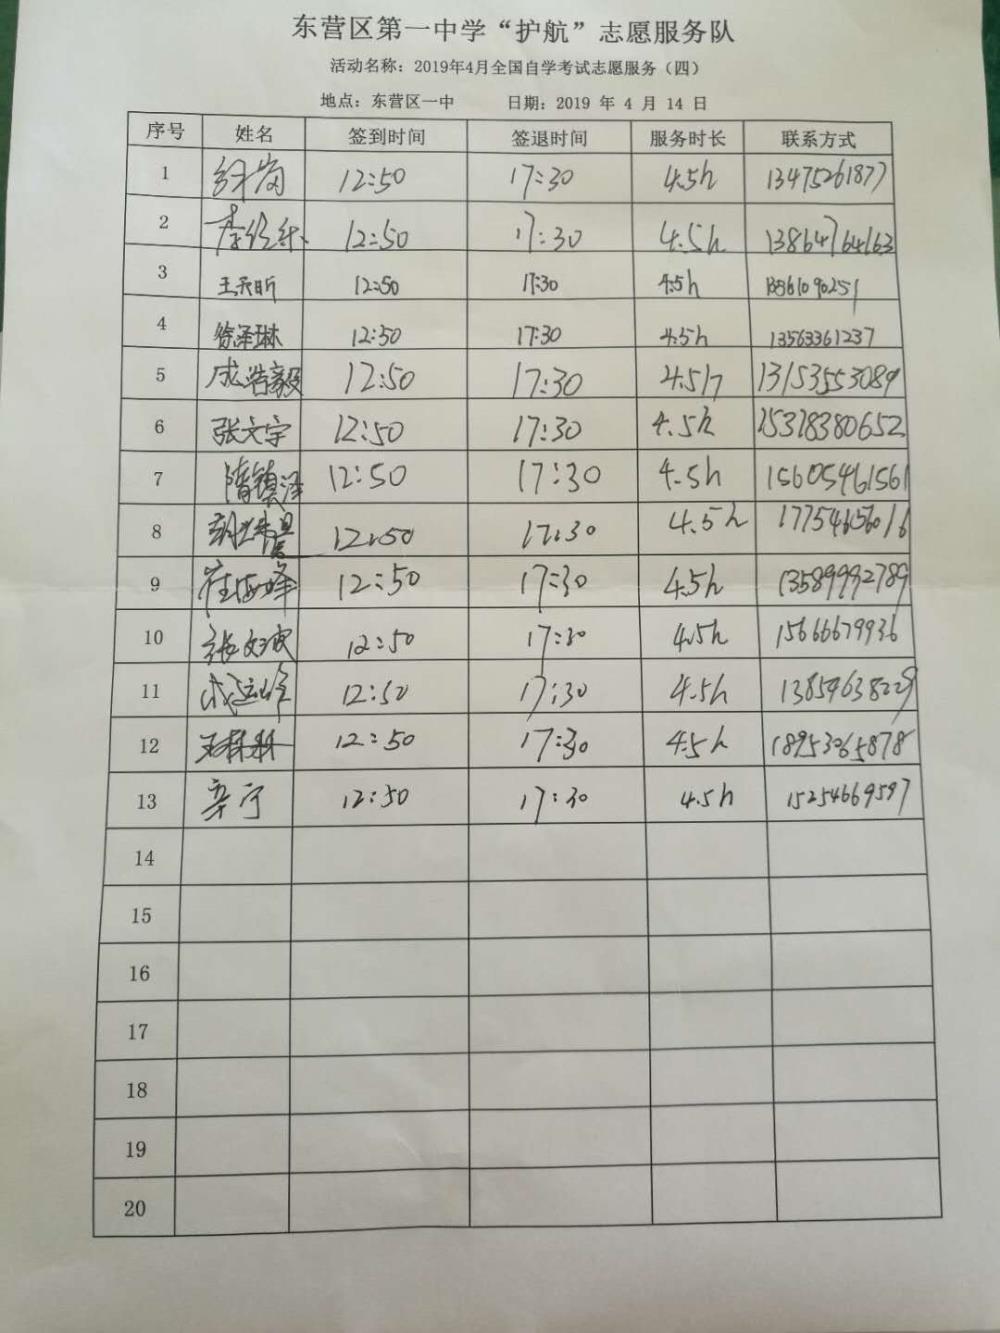 东营区第一中学“护航”志愿服务队
活动名称：2019年4月全国自学考试志愿服务（四）
地点：东营区一中 日期：2019 年 4 月 14 日
序号 姓名 签到时间 签退时间 服务时长 联系方式
1 12:50 17:30 4.5h 13475261877
2 12:50 17:30 4.5h 13864764163
3 12:50 17:30 4.5h 13561090251
4 徐泽琳 12:50 17:30 4.5h 13563361237
5 成浩毅 12:50 17:30 4.5h 13153553089
6 张文宇 12:50 17:30 4.5h 15318380652
7 隋镇泽 12:50 17:30 4.5h 15605461561
8 12:50 17:30 4.5h 17754656016
9 崔海峰 12:50 17:30 4.5h 13589992789
10 12:50 17:30 4.5h 15666679936
11 成运峰 12:50 17:30 4.5h 13854638229
12 王林林 12:50 17:30 4.5h 18953065878
13 辛宁 12:50 17:30 4.5h 15254669597
14
15
16
17
18
19
20